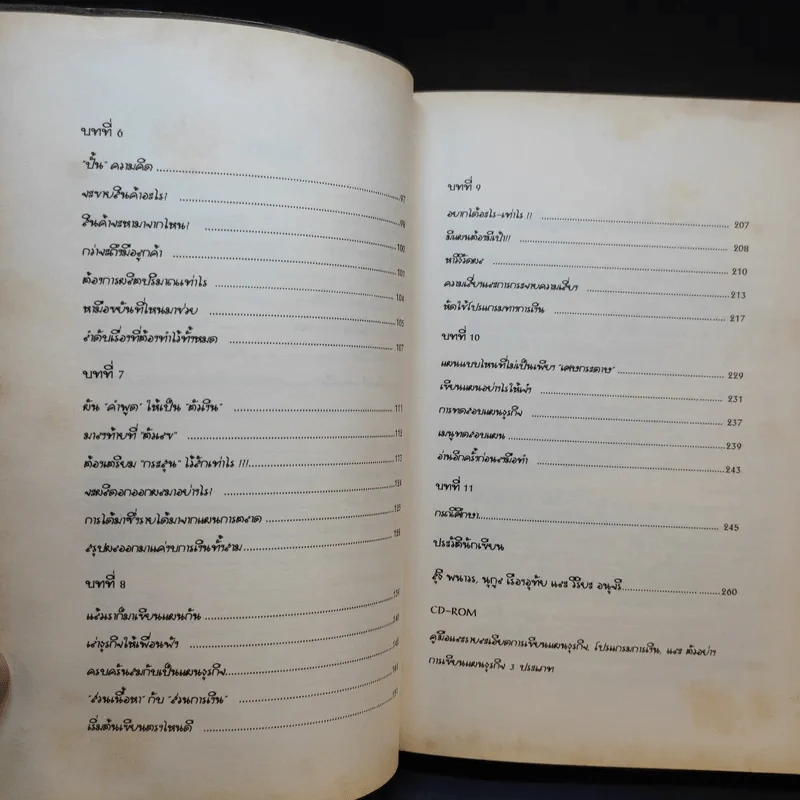 บทที่ 6
"ปั้น" ความคิด ........ 97
จะขายสินค้าอะไร! ........ 99
สินค้าจะหามาจากไหน! ........ 100
กว่าจะถึงมือลูกค้า ........ 101
ต้องการผลิตปริมาณเท่าไร ........ 104
หามือขยันที่ไหนมาช่วย ........ 105
ลำดับเรื่องที่ต้องทำไว้ทั้งหมด ........ 107
บทที่ 7
ผัน "คำพูด" ให้เป็น "ตัวเงิน" ........ 111
มาลงท้ายที่ "ตัวเลข" ........ 112
ต้องเตรียม "กระสุน" ไว้สักเท่าไร !!! ........ 113
จะผลิดอกออกผลมาอย่างไร! ........ 124
การได้มาซึ่งรายได้มาจากแผนการตลาด ........ 125
สรุปผลออกมาแค่งบการเงินทั้งสาม
บทที่ 8
แล้วเราก็มาเขียนแผนกัน
เล่าธุรกิจให้เพื่อนฟัง
ครบครันสมกับเป็นแผนธุรกิจ
"ส่วนเนื้อหา" กับ "ส่วนการเงิน"
เริ่มต้นเขียนตรงไหนดี
บทที่ 9
อยากได้อะไร-เท่าไร !! ........ 207
มีแผนต้องมีเป้า!!! ........ 208
หาวิธีวัดผล ........ 210
ความเสี่ยงและการกระจายความเสี่ยง ........ 213
หัดใช้โปรแกรมทางการเงิน ........ 217
บทที่ 10
แผนแบบไหนที่ไม่เป็นเพียง "เศษกระดาษ" ........ 229
เขียนแผนอย่างไรให้เจ๋ง ........ 231
การทดสอบแผนธุรกิจ ........ 237
เมนูทดสอบแผน ........ 239
อ่านอีกครั้งก่อนลงมือทำ ........ 243
บทที่ 11
กรณีศึกษา ........ 245
ประวัตินักเขียน
รุจี พนาวร, นุกูล เรืองอุทัย และ วิริยะ อนุจรี ........ 260
CD-ROM
คู่มือและรายละเอียดการเขียนแผนธุรกิจ, โปรแกรมการเงิน, และ ตัวอย่าง
การเขียนแผนธุรกิจ 3 ประเภท